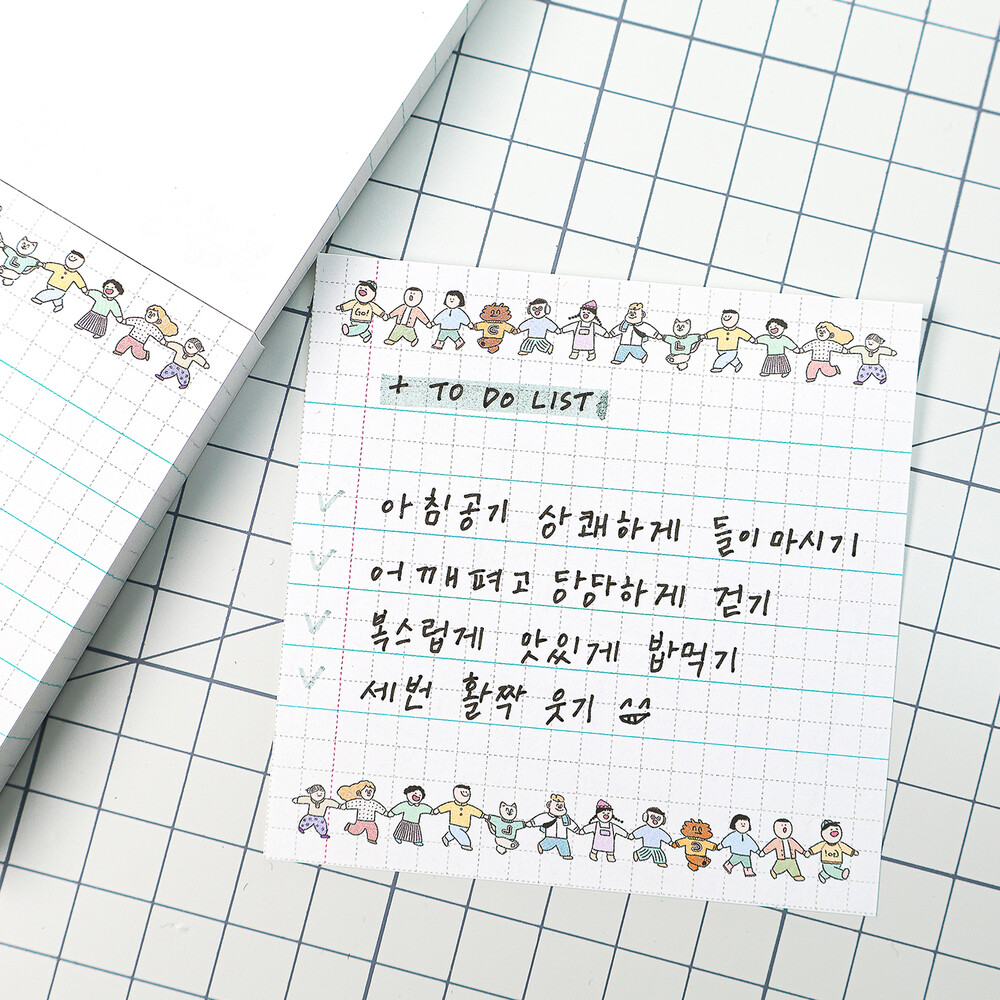 Go!
+ TO DO LIST
아침공기 상쾌하게 들이마시기
어깨펴고 당당하게 걷기
복스럽게 맛있게 밥먹기
세번 활짝 웃기 ^^